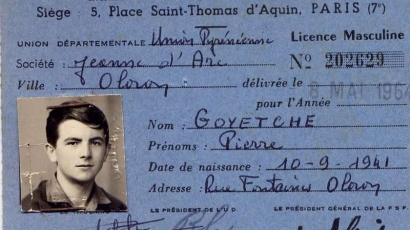 Siège : 5, Place Saint-Thomas d'Aquin, PARIS (7e)
UNION DÉPARTEMENTALE Union Pyrénéenne Licence Masculine
Société : Jeanne d'Arc No 202629
Ville : Oloron délivrée le 8 MAI 1964
pour l'Année
Nom : GOYETCHE
Prénoms : Pierre
Date de naissance : 10-9-1941
Adresse : Rue Fontaines Oloron
LE PRÉSIDENT DE L'U D. LE PRÉSIDENT GÉNÉRAL DE LA F S F